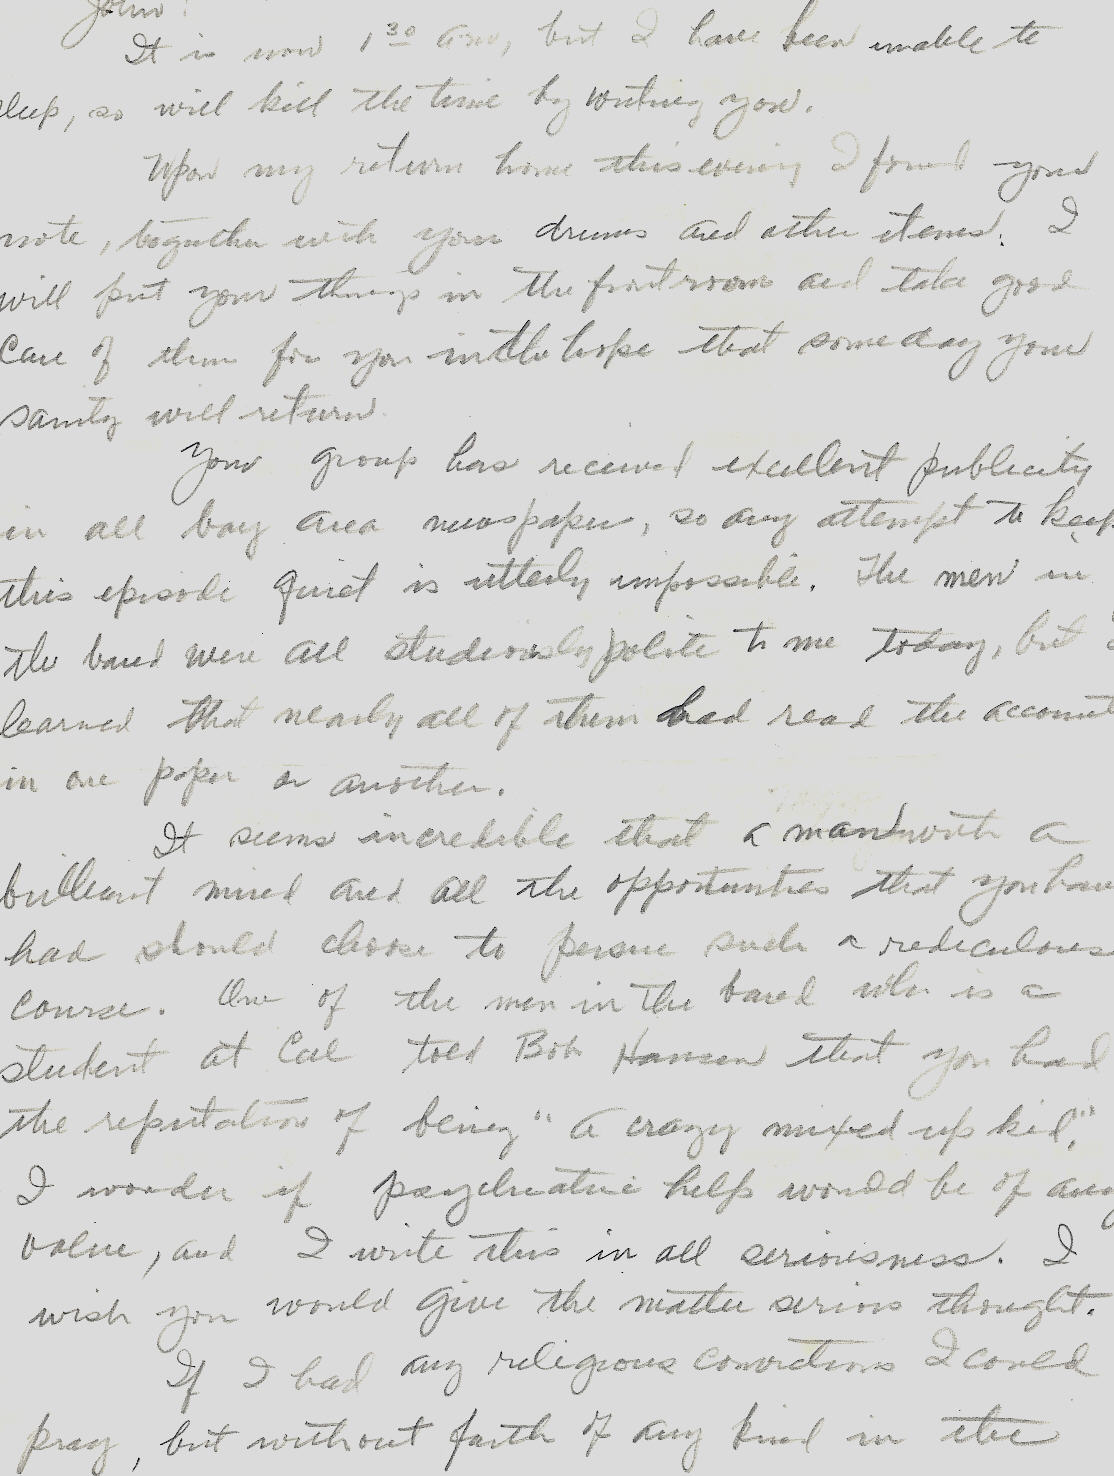 John:
It is now 1 30 am, but I have been unable to
sleep, so will kill the time by writing you.
Upon my return home this evening I found your
note, together with your drums and other items. I
will put your things in the front room and take good
care of them for you in the hope that some day your
sanity will return.
Your group has received excellent publicity
in all bay area newspapers, so any attempt to keep
this episode quiet is utterly impossible. The men in
the band were all studiously polite to me today, but I
learned that nearly all of them had read the account
in one paper or another.
It seems incredible that a man with a
brilliant mind and all the opportunities that you have
had should choose to persue such a rediculous
course. One of the men in the band who is a
student at Cal told Bob Hansen that you had
the reputation of being "a crazy mixed up kid."
I wonder if psychiatric help would be of any
value, and I write this in all seriousness. I
wish you would give the matter serious thought.
If I had any religious convictions I could
pray, but without faith of any kind in the